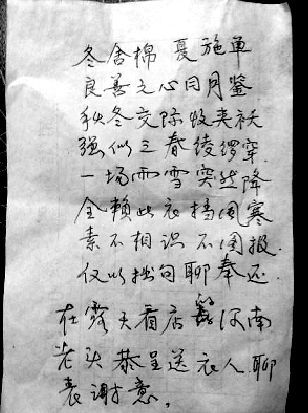 冬舍棉 夏施单
良善之心日月鉴
秋冬交际收夹袄
强似三春绫缎穿
一场雨雪突然降
全赖此衣挡风寒
素不相识不图报
仅以拙句聊奉还
在露天看店 河南
老头恭呈送衣人聊
表谢意。